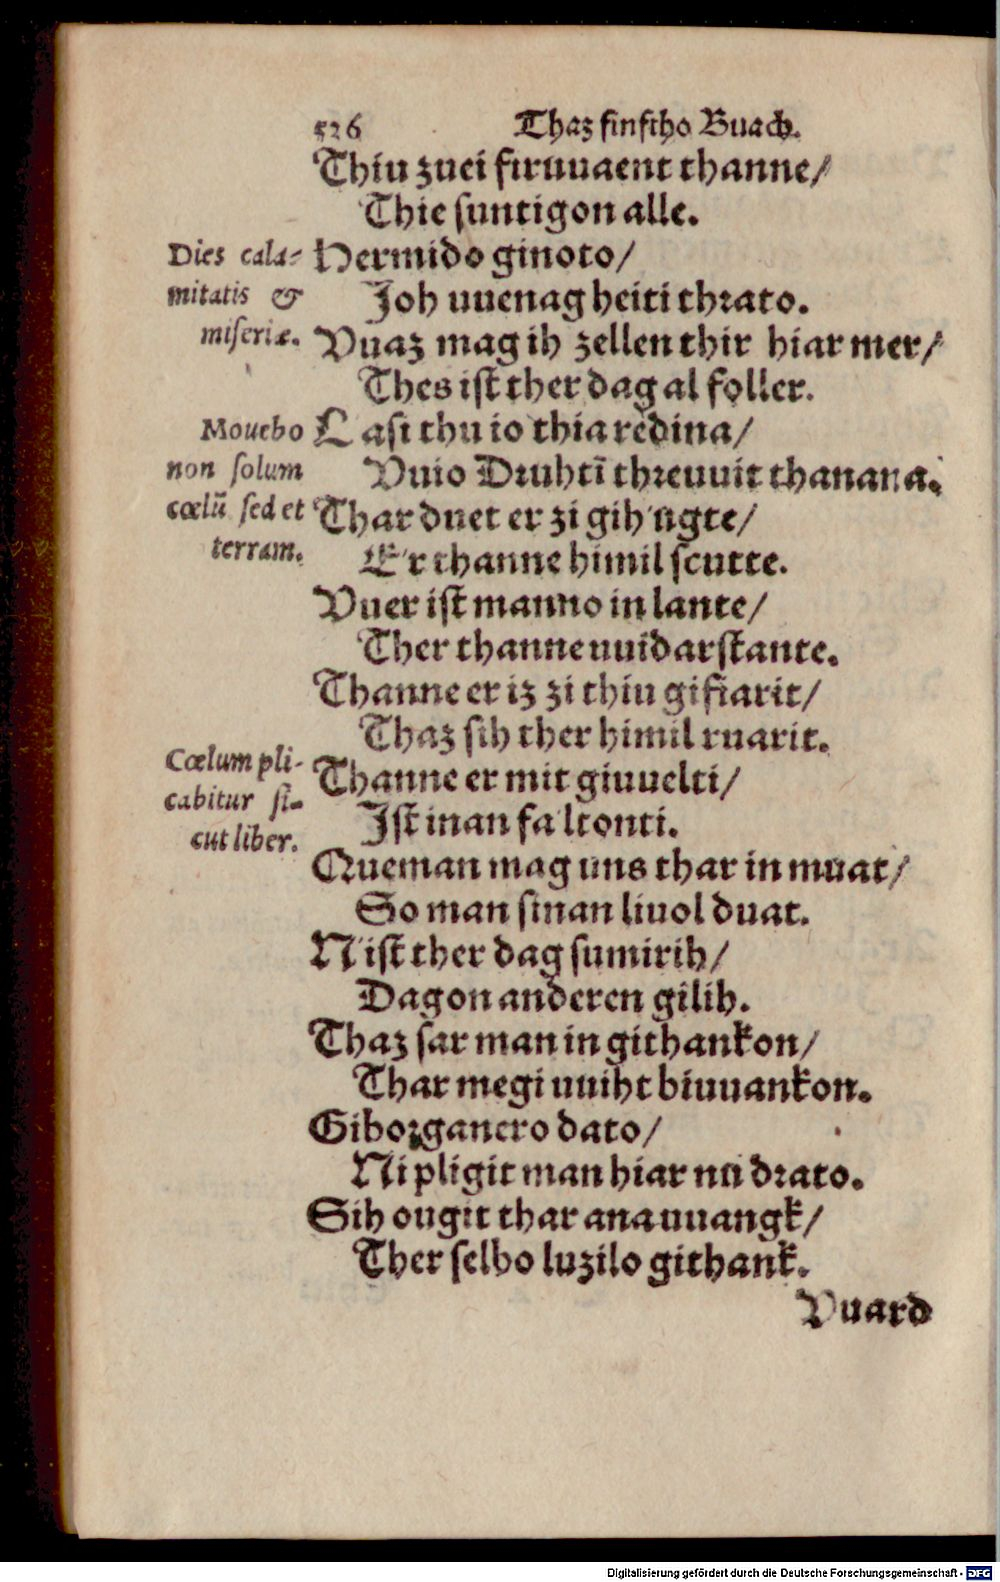 526 Thaz finftho Buach.
Thiu zuei firuuaent thanne/
Thie suntigon alle.
Dies cala-
mitatis &
miseriæ.
Hermido ginoto/
Joh uuenagheiti thrato.
Vuaz mag ih zellen thir hiar mer/
Thes ist ther dag al foller.
Mouebo
non solum
cœlū sed et
terram.
Lasi thu io thia redina/
Vuio Druhtī threuuit thanana.
Thar duet er zi gih ugte/
E'r thanne himil scutte.
Vuer ist manno in lante/
Ther thanne uuidarstante.
Thanne er iz zi thiu gifiarit/
Thaz sih ther himil ruarit.
Cœlum pli-
cabitur si-
cut liber.
Thanne er mit giuuelti/
Ist inan fa ltonti.
Queman mag uns thar in muat/
So man sinan liuol duat.
N'ist ther dag sumirih/
Dagon anderen gilih.
Thaz sar man in githankon/
Thar megi uuiht biuuankon.
Giborganero dato/
Ni pligit man hiar nu drato.
Sih ougit thar ana uuangk/
Ther selbo luzilo githank.
Vuard
Digitalisierung gefördert durch die Deutsche Forschungsgemeinschaft - DFG